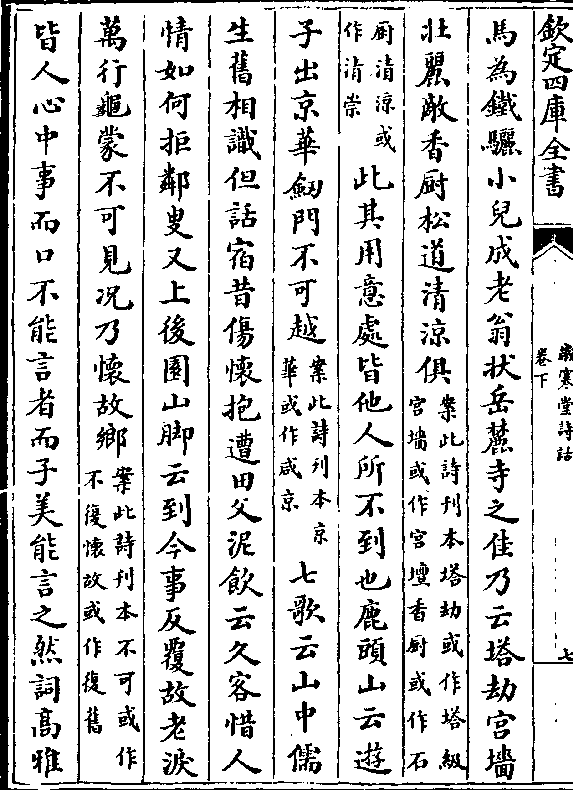 欽定四庫全書
歲寒堂詩話
卷下
七
馬為鐵驪小兒成老翁狀岳麓寺之佳乃云塔劫宮墻
壯麗敵香厨松道清涼俱案此詩刊本塔劫或作塔級宮墻或作宮壇香厨或作石
厨清涼或作清崇此其用意處皆他人所不到也鹿頭山云遊
子出京華劒門不可越案此詩刊本京華或作咸京七歌云山中儒
生舊相識但話宿昔傷懷抱遭田父泥飲云久客惜人
情如何拒鄰叟又上後園山脚云到今事反覆故老淚
萬行龜蒙不可見况乃懷故鄉案此詩刊本不可或作不復懷故或作復舊
皆人心中事而口不能言者而子美能言之然詞高雅